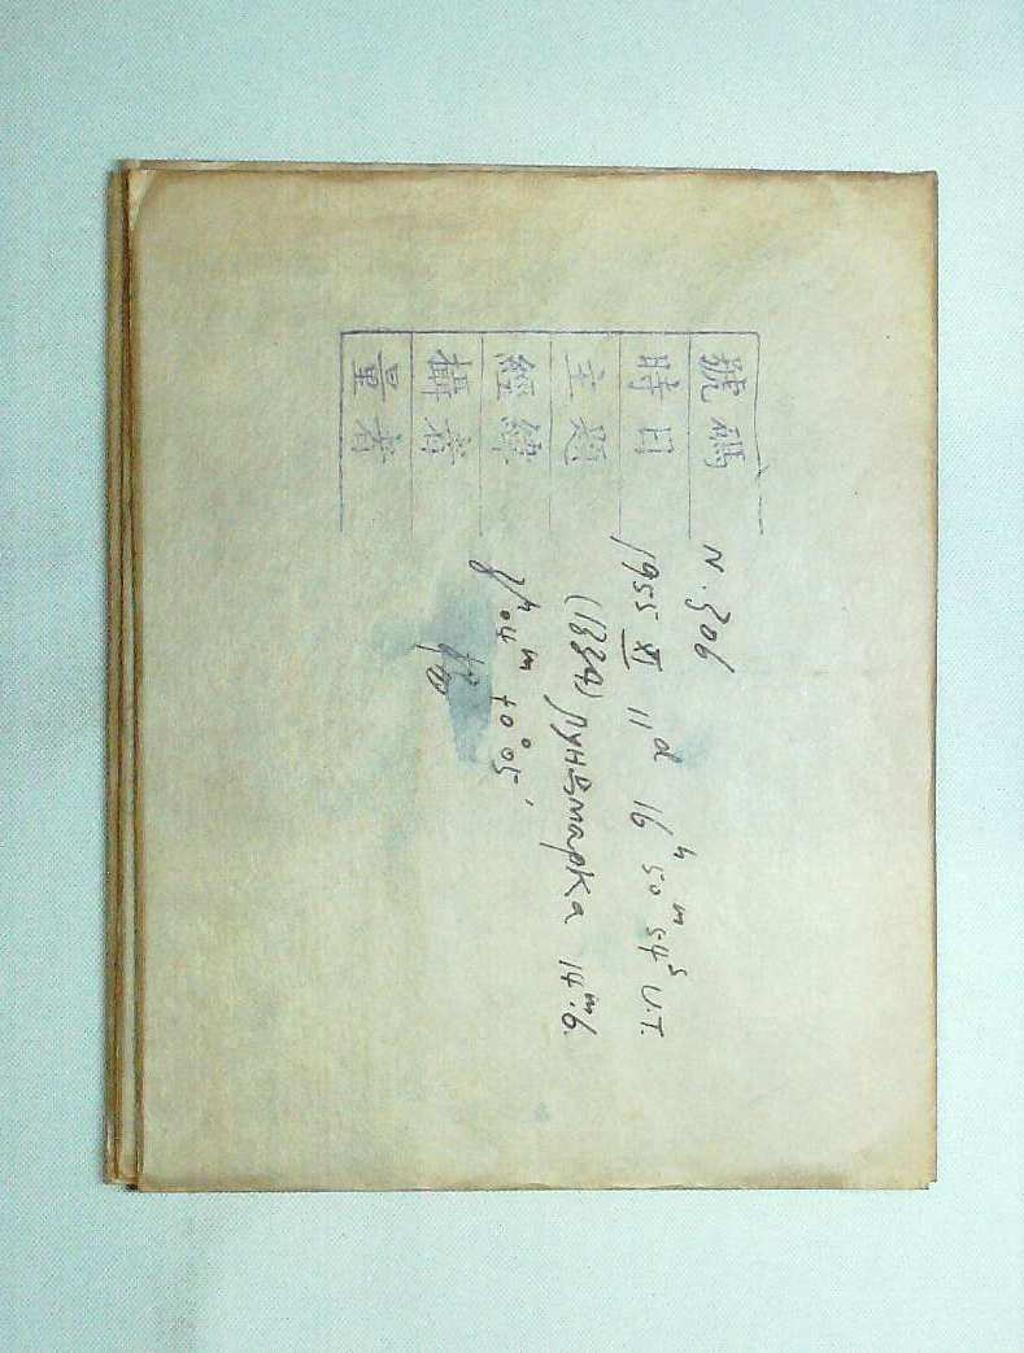 號碼 N. 306
時日 1955 XI 11d 16h 50m 54s U.T.
主題 (1334) Лундмарка 14m.6.
經緯 04m +0°05'
攝者
量者